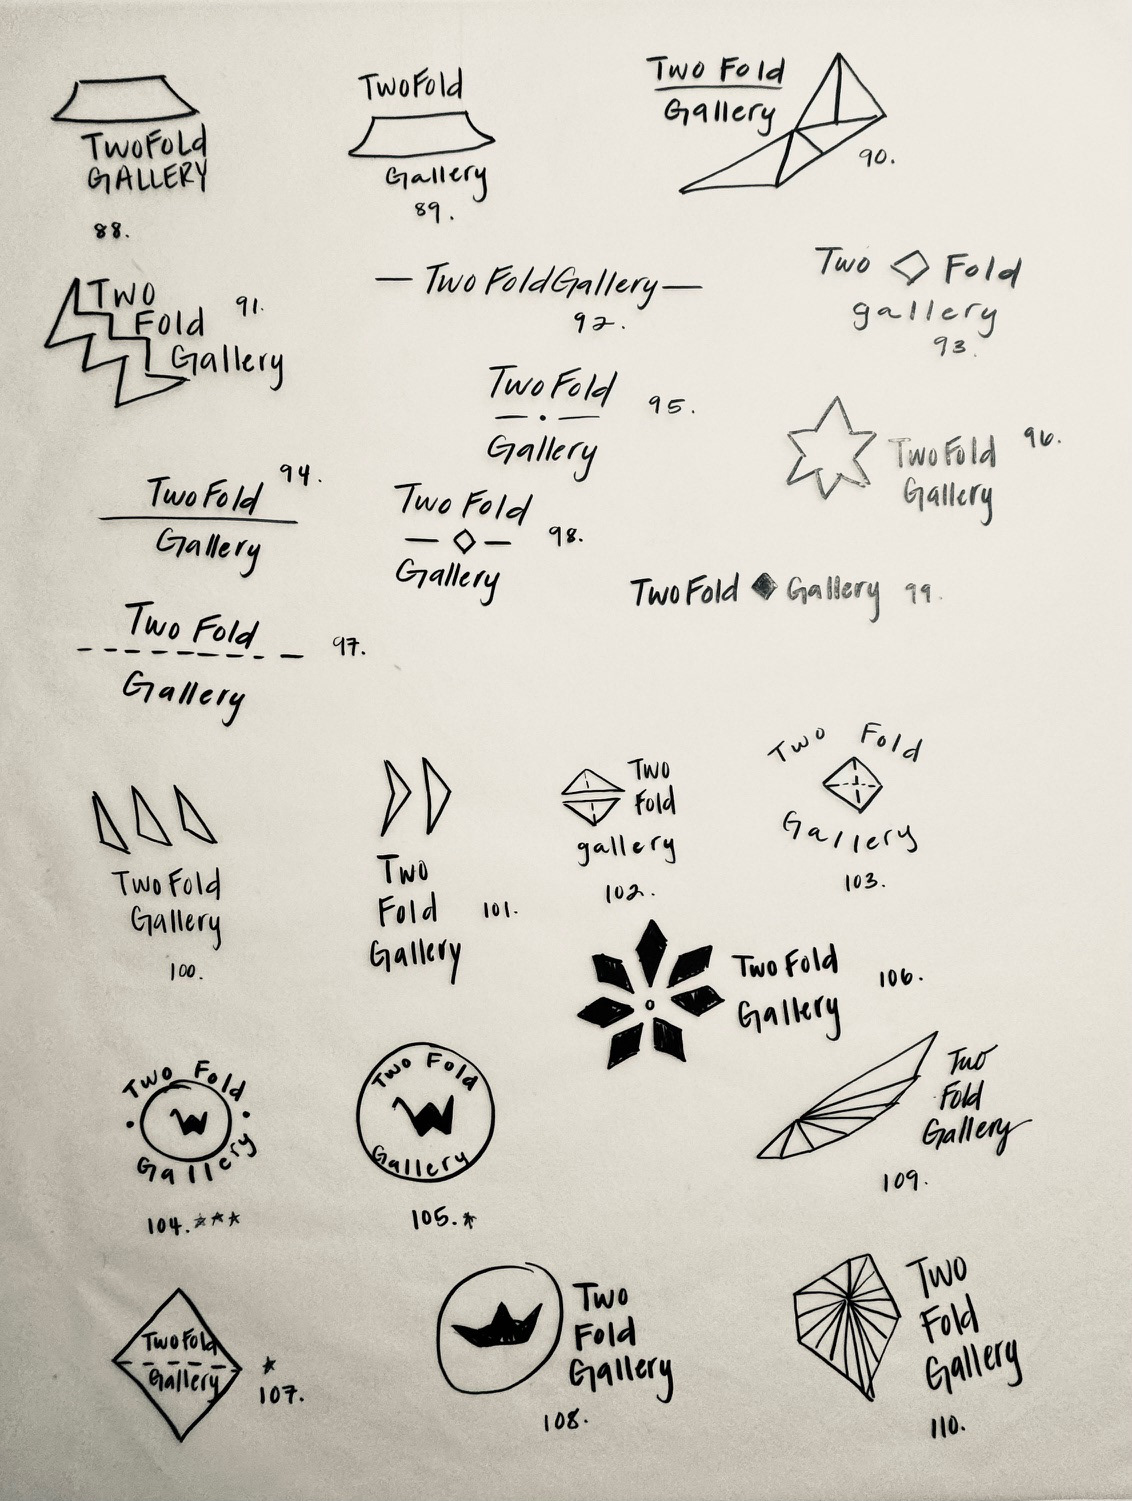 TwoFold
GALLERY
88.
TwoFold
Gallery
89.
Two Fold
Gallery
90.
Two
Fold
Gallery
91.
— Two FoldGallery —
92.
Two ◇ Fold
gallery
93.
TwoFold
Gallery
94.
Two Fold
— · —
Gallery
95.
TwoFold
Gallery
96.
Two Fold
Gallery
97.
Two Fold
— ◇ —
Gallery
98.
TwoFold ◆ Gallery 99.
Two Fold
Gallery
100.
Two
Fold
Gallery
101.
Two
Fold
gallery
102.
Two Fold
Gallery
103.
Two Fold
Gallery
106.
Two Fold
Gallery
104. ☆☆☆
Two Fold
Gallery
105. ☆
Two
Fold
Gallery
109.
Two Fold
Gallery
☆
107.
Two
Fold
Gallery
108.
Two
Fold
Gallery
110.